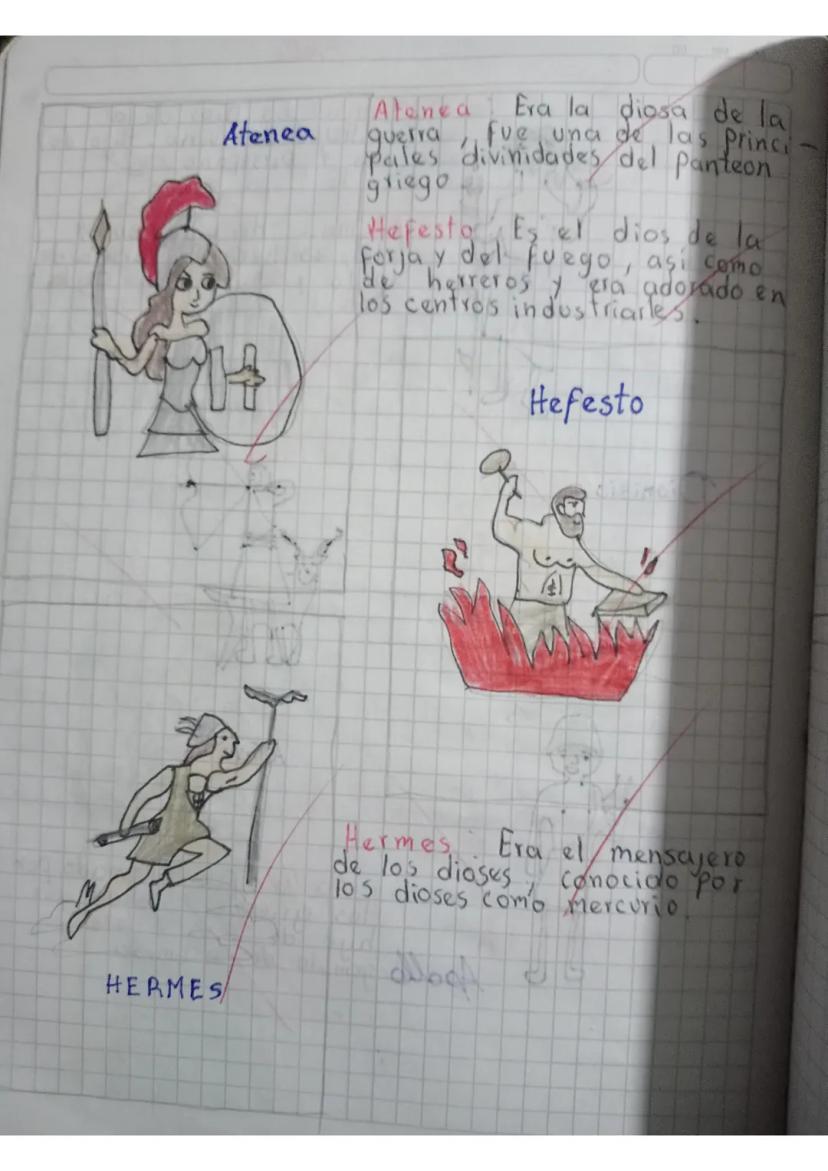 Atenea
Atenea : Era la diosa de la
guerra, fue una de las princi-
pales divinidades del panteon
griego
Hefesto : Es el dios de la
forja y del fuego, así como
de herreros y era adorado en
los centros industriarles.
Hefesto
Hermes : Era el mensajero
de los dioses, conocido por
los dioses como mercurio.
HERMES
Apollo